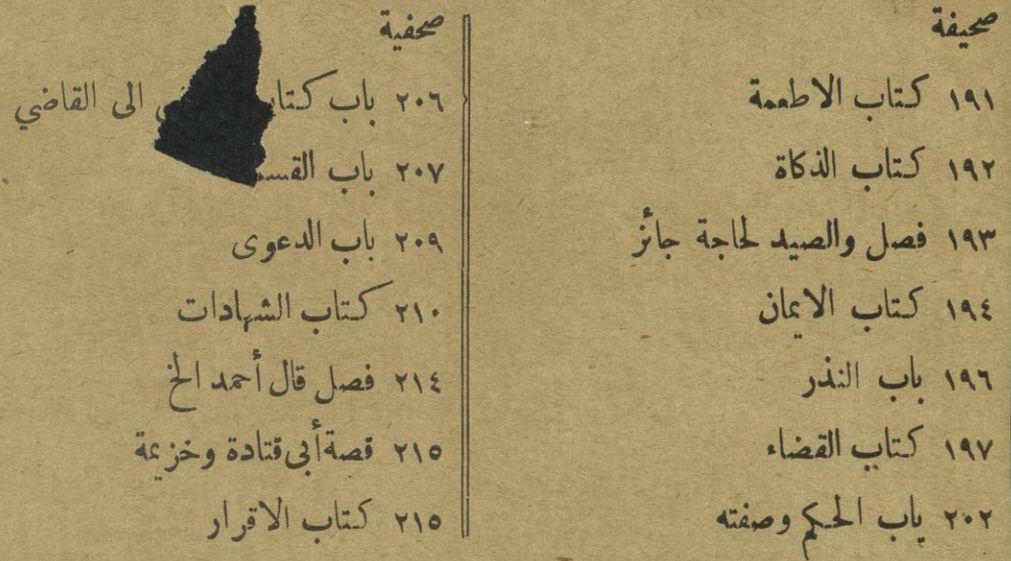 صحيفة
١٩١ كتاب الاطعمة
١٩٢ كتاب الذكاة
١٩٣ فصل والصيد لحاجة جائز
١٩٤ كتاب الايمان
١٩٦ باب النذر
١٩٧ كتاب القضاء
٢٠٢ ياب الحكم وصفته
صحفية
٢٠٦ باب الى القاضي
٢٠٧ باب
٢٠٩ باب الدعوى
٢١٠ كتاب الشهادات
٢١٤ فصل قال أحمد الخ
٢١٥ قصة أبى قتادة وخزيمة
٢١٥ كتاب الاقرار